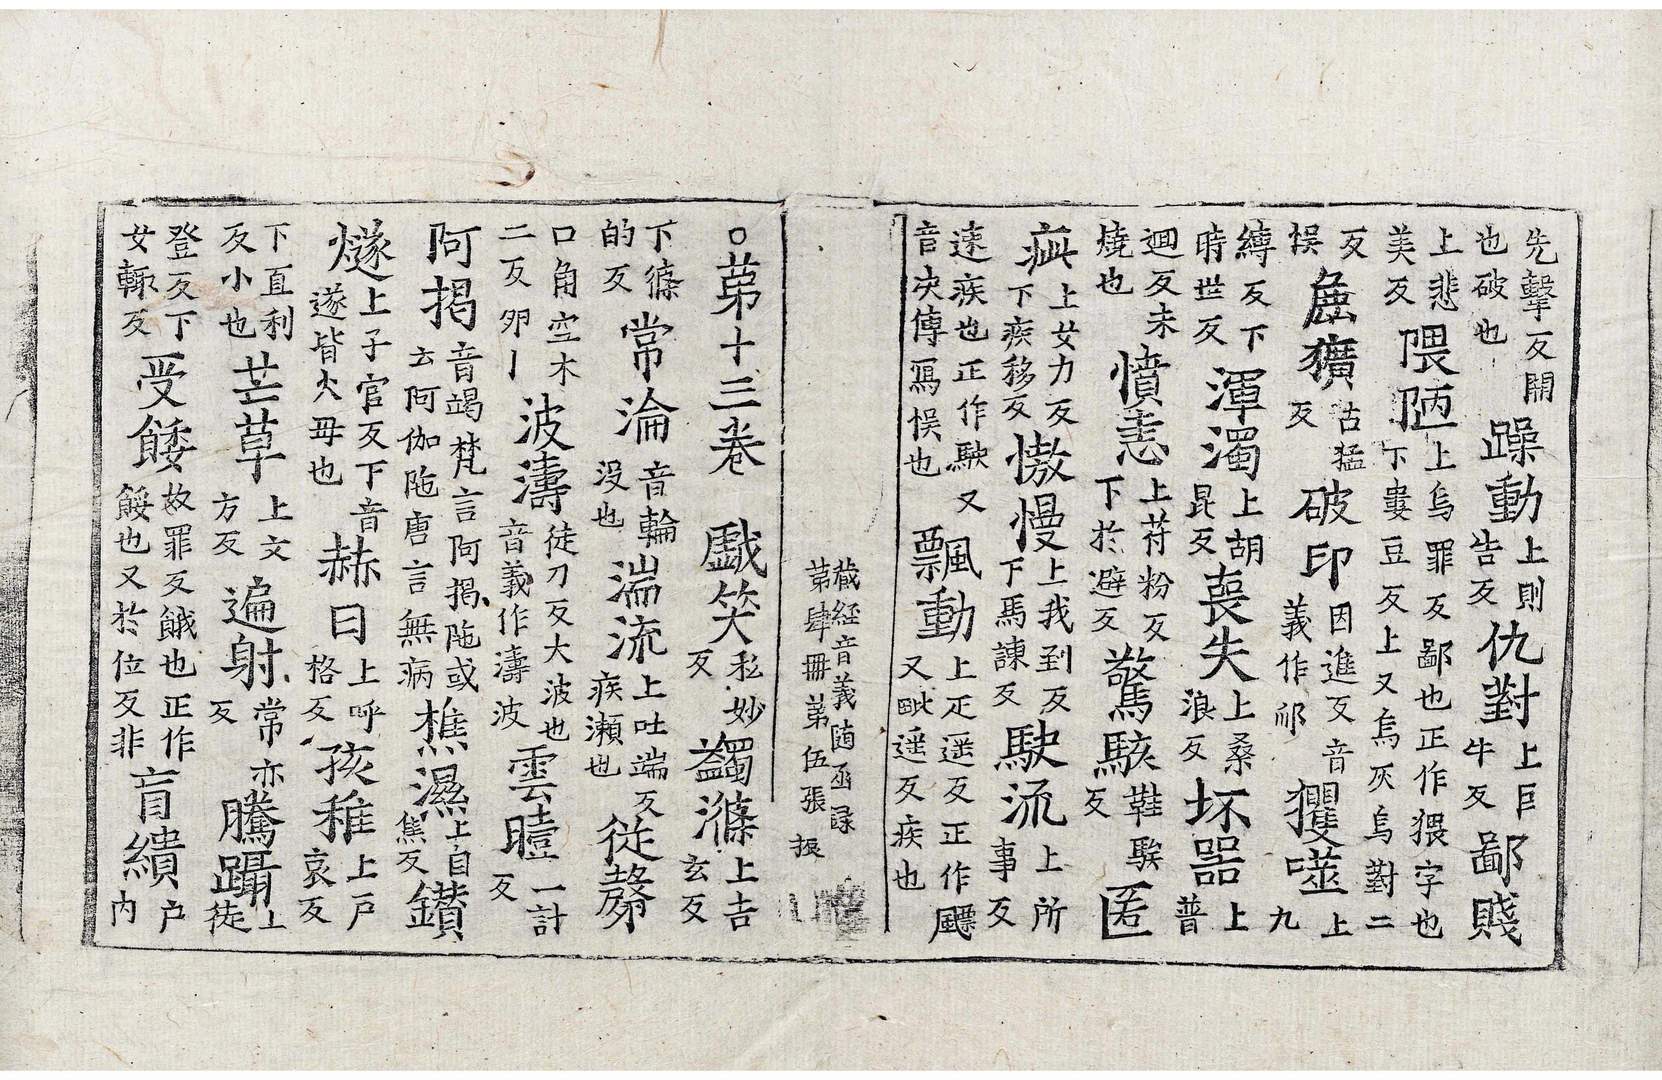 先擊反開也破也躁動上則告反仇對上巨牛反鄙賤
上悲美反隈陋上烏罪反鄙也正作猥字也下婁豆反上又烏灰烏對二
反悮麁獷古猛反破印因進反音義作𨙻玃噬上九
縛反下時世反渾濁上胡昆反喪失上桑浪反坏器上普
迴反未燒也憤恚上苻粉反下於避反驚駭鞋駭反匿
疵上女力反下疾移反慠慢上我到反下馬諫反駛流上所事反
速疾也正作駛又音决傳寫悮也飄動上疋遥反正作飃又毗遥反疾也
藏經音義随函録第肆冊第伍張 振
○苐十三卷 戲笑私妙反蠲滌上古玄反
下滌的反常淪音輪没也湍流上吐端反疾瀬也從孴
口角空木二反夘丨波濤徒刀反大波也音義作濤波雲曀一計反
阿揭音竭梵言阿揭陁或云阿伽陁唐言無病樵濕上自焦反鑚
燧上子官反下音遂皆火毋也赫日上呼格反孩稚上戸哀反
下直利反小也芒草上文方反遍射常亦反騰躡上徒
登反下女輙反受餧奴罪反餓也正作餒也又於位反非肓繢户内